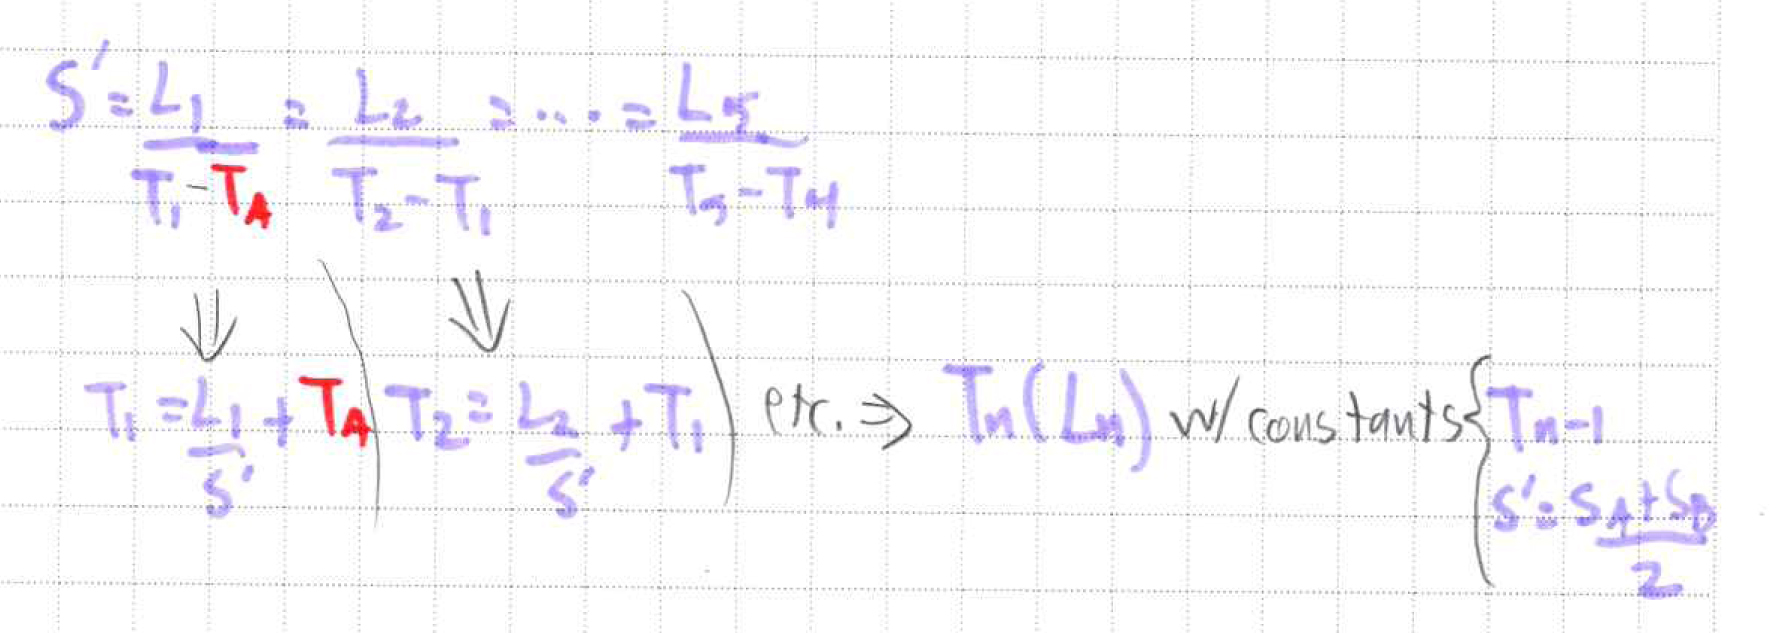 S' = L1/(T1 - TA) = L2/(T2 - T1) = .... = L5/(T5 - T4)
⇓ ⇓
T1 = L1/S' + TA | T2 = L2/S' + T1 | etc. ⇒ Tn(Ln) w/ constants { Tn-1
S' = (SA + SB)/2